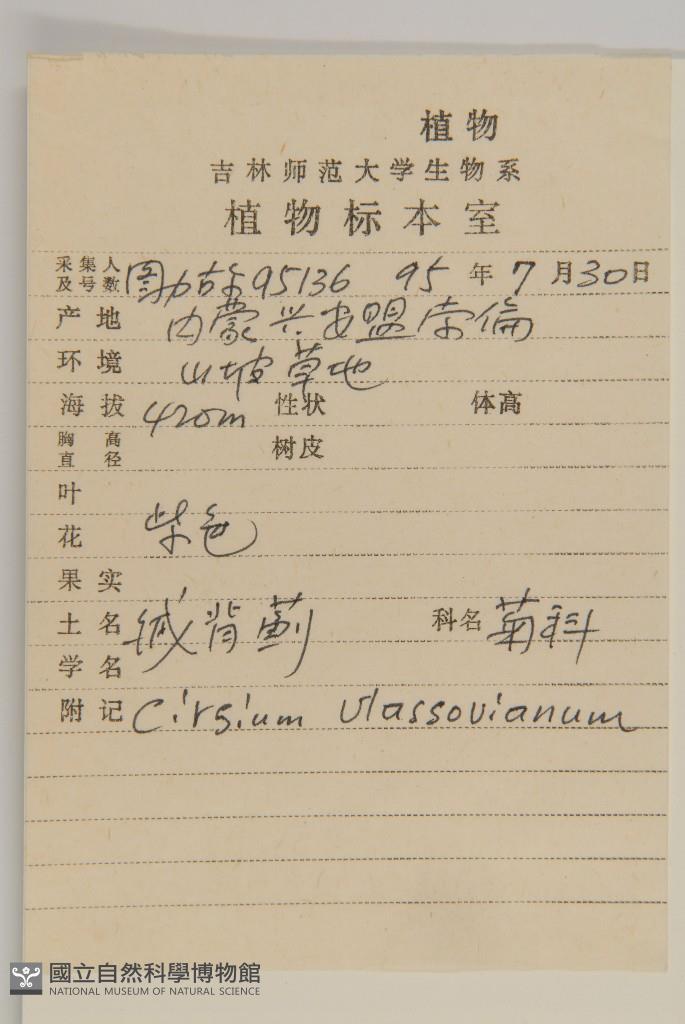 植物
吉林师范大学生物系
植物标本室
采集人及号数 图力古尔95136 95年7月30日
产地 内蒙兴安盟索倫
环境 山坡草地
海拔 420m 性状 体高
胸高直径 树皮
叶
花 紫色
果实
土名 绒背蓟 科名 菊科
学名
附记 Cirsium vlassovianum
國立自然科學博物館
NATIONAL MUSEUM OF NATURAL SCIENCE